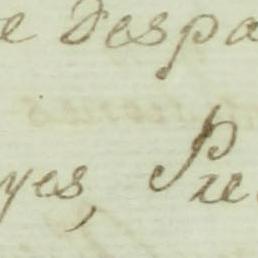 e Despa
yes, Pue